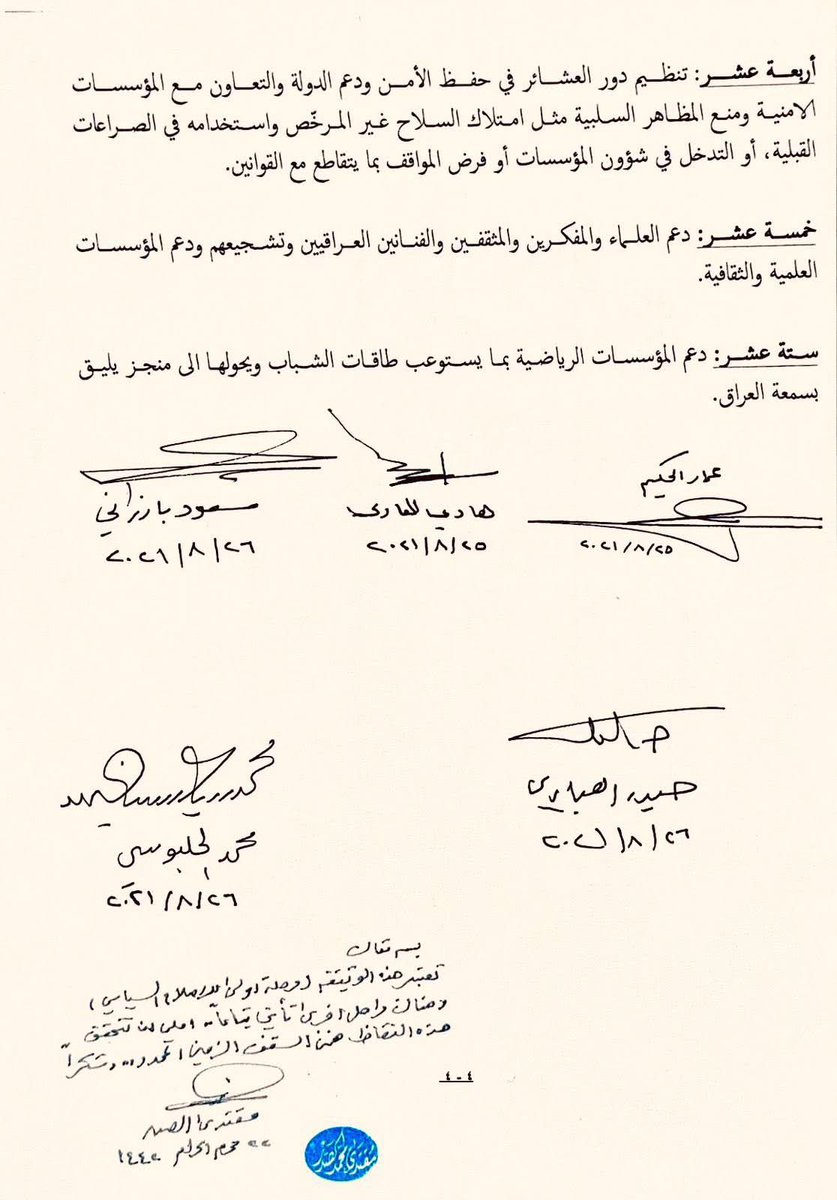 أربعة عشر: تنظيم دور العشائر في حفظ الأمن ودعم الدولة والتعاون مع المؤسسات
الامنية ومنع المظاهر السلبية مثل امتلاك السلاح غير المرخّص واستخدامه في الصراعات
القبلية، أو التدخل في شؤون المؤسسات أو فرض المواقف بما يتقاطع مع القوانين.
خمسة عشر: دعم العلماء والمفكرين والمثقفين والفنانين العراقيين وتشجيعهم ودعم المؤسسات
العلمية والثقافية.
ستة عشر: دعم المؤسسات الرياضية بما يستوعب طاقات الشباب ويحولها الى منجز يليق
بسمعة العراق.
عمار الحكيم
٢٠٢١/٨/٢٥
هادي العامري
٢٠٢١/٨/٢٥
مسعود بارزاني
٢٠٢١/٨/٢٦
حيدر العبادي
٢٠٢١/٨/٢٦
محمد الحلبوسي
٢٠٢١/٨/٢٦
بسمه تعالى
تعتبر هذه الوثيقة (وصلة اولى للاصلاح السياسي)
وهناك مراحل اخرى تأتي تباعاً.. املي ان تتحقق
هذه النقاط ضمن السقف الزمني المحدد.. وشكراً
مقتدى الصدر
محرم الحرام ١٤٤٢
٤-٤